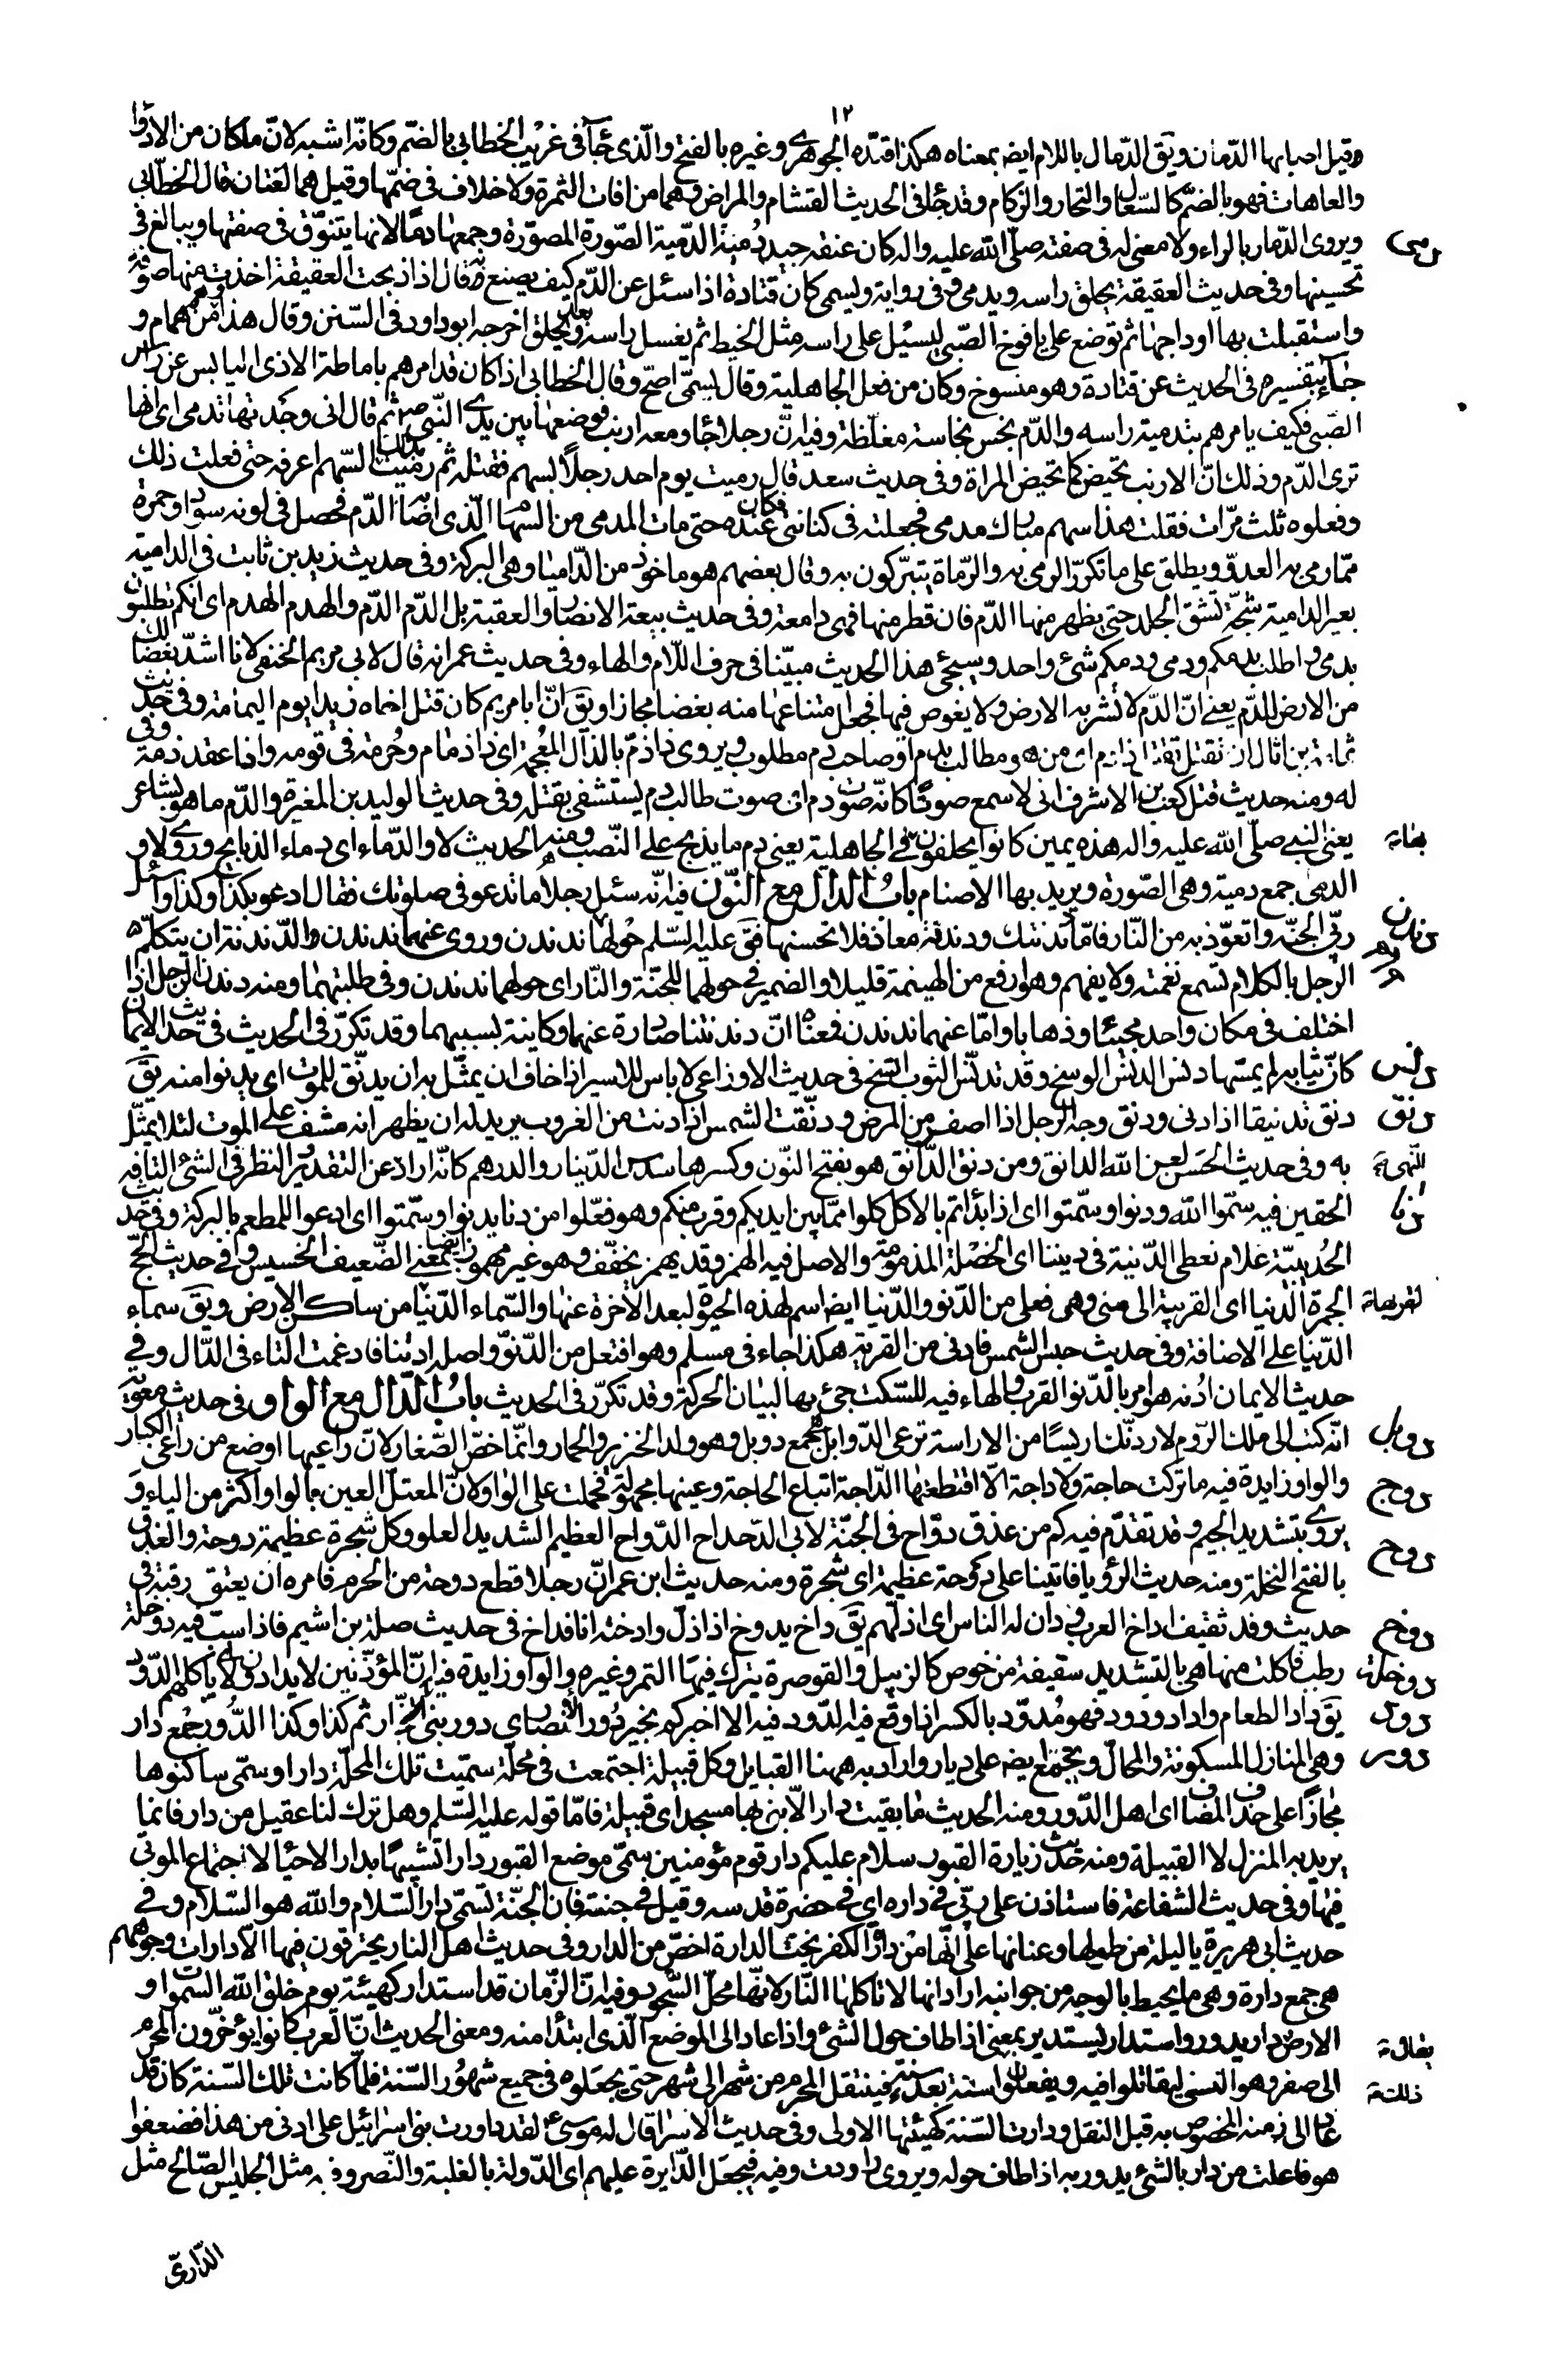 ١٢
وقيل اصابها الدّمان ويق الدّمال باللام ايضه بمعناه هكذا قيّده الجوهرى وغيره بالفتح والّذى جآ فى غريب الخطابى بالضّم وكانّه اشبه لانّ ماكان من الادوا
والعاهات فهو بالضمّ كالسّعال والنحاز والزّكام وقد جا فى الحديث القشام والمراض وهما من افات الثمرة ولا خلاف فى ضمّها وقيل هما لغتان قال الخطّابى
دمى ويروى الدّمار بالراء ولا معنى له فى صفته صلّى الله عليه واله كان عنقه جيد دُمية الدّمية الصّورة المصوّرة وجمعها دمًا لانها يتنوّق فى صنعتها ويبالغ فى
تحسينها وفى حديث العقيقة يحلق راسه ويدمى وفى رواية ويسمى كان قتادة اذا سئل عن الدّم كيف يصنع به قال اذا ذبحت العقيقة اخذت منها صوفة
واستقبلت بها اوداجها ثم توضع على يافوخ الصّبى ليسيل على راسه مثل الخيط ثم يغسل راسه بعد ويحلق اخرجه ابو داود فى السّنن وقال هذا وهم من همام و
جاء بتفسيره فى الحديث عن قتادة وهو منسوخ وكان من فعل الجاهلية وقال يسمّى اصحّ وقال الخطابى اذا كان قد امرهم باماطة الاذى اليابس عن راس
الصّبى فكيف يامرهم بتدمية راسه والدّم نجس نجاسة مغلّظة وفيه انّ رجلا جا ومعه ارنب فوضعها بين يدى النّبى ص ثم قال انى وجدتها تدمى اى انها
ترى الدّم وذلك انّ الارنب تحيض كما تحيض المراة وفى حديث سعد قال رميت يوم احد رجلًا بسهم فقتلته ثم رميت بذلك السّهم اعرفه حتى فعلت ذلك
وفعلوه ثلث مرّات فقلت هذا سهم مبارك مدمى فجعلته فى كنانتى فكان عنده حتى مات المدمى من السّهام الّذى اصابه الدّم فحصل فى لونه سواد وحمرة
ممّا رمى به العدوّ ويطلق على ما تكرّر الرمى به والرّماة يتبرّكون به وقال بعضهم هو ماخوذ من الدّاميا وهى البركة وفى حديث زيد بن ثابت فى الدامية
بعير الدامية شجّة تشق الجلد حتى يظهر منها الدّم فان قطر منها فهى دامعة وفى حديث بيعة الانصار والعقبة بل الدّم الدّم والهدم الهدم اى انكم تطلبون
بدمى واطلب بدمكم ودمى ودمكم شئ واحد وسيجئ هذا الحديث مبيّنا فى حرف اللّام والهاء وفى حديث عمر انه قال لابى مريم الحنفى لانا اشدّ بغضا لك
من الارض للدّم يعنى انّ الدّم لا تشربه الارض ولا يغوص فيها فجعل امتناعها منه بغضا مجازا ويق انّ ابا مريم كان قتل اخاه زيدا يوم اليمامة وفى حديث
ثمامة بن اثال ان تقتل تقتل ذا دم اى من هو مطالب بدم او صاحب دم مطلوب ويروى ذا ذمّ بالذّال المعجمة اى ذا ذمام وحُرمة فى قومه واذا عقد ذمة وفى
له ومنه حديث قتل كعب بن الاشرف انى لاسمع صوتًا كانّه صوت دم اى صوت طالب دم يستشفى بقتله وفى حديث الوليد بن المغيرة والدّم ما هو بشاعر
يعنى النبى صلّى الله عليه واله هذه يمين كانوا يحلفون بها فى الجاهلية يعنى دم ما يذبح على النّصب ومنه الحديث لا والدّماء اى دماء الذبايح وروى لا و
الدمى جمع دمية وهى الصّورة ويريد بها الاصنام باب الدال مع النّون فيه انّه سئل رجلا ما تدعو فى صلوتك فقال ادعو بكذا وكذا واسئل
دندن ربّى الجنّة واتعوّذ به من النّار فامّا دندنتك ودندنة معاذ فلا نحسنها فق عليه السّلم حولها ندندن وروى عنهما ندندن والدّندنة ان يتكلّم
الرجل بالكلام تسمع نغمته ولا يفهم وهو ارفع من الهينمة قليلا والضمير فى حولهما للجنّة والنّار اى حولهما ندندن وفى طلبتهما ومنه دندن الرجل اذا
اختلف فى مكان واحد مجيئا وذهابا وامّا عنهما ندندن فمعناه انّ دندنتنا صادرة عنهما وكاينة بسببهما وقد تكرّر فى الحديث فى حديث الايمان
دنس كانّ ثيابه لم يمسّها دنس الدنس الوسخ وقد تدنّس الثوب اتّسخ فى حديث الاوزاعى لا باس للاسير اذا خاف ان يمثّل به ان يدنّق للموت اى يدنو منه يق
دنق دنق تدنيقا اذا دنى ودنق وجه الرجل اذا اصفر من المرض ودنّقت الشمس اذا دنت من الغروب يريد له ان يظهر انه مشف على الموت لئلا يمثّل
به وفى حديث الحسن لعن الله الدانق ومن دنق الدّانق هو بفتح النّون وكسرها سدس الدّينار والدرهم كانّه اراد عن التقدير النظر فى الشئ التافه
دنا الحقير فيه سمّوا الله ودنوا وسمّتوا اى اذا بدأتم بالاكل كلوا ممّا بين ايديكم وقرب منكم وهو فعّلوا من دنا يدنو وسمّتوا اى ادعوا للمطعم بالبركة وفى حديث
الحُديبيّة علام نعطى الدّنية فى ديننا اى الخصْلة المذمومة والاصل فيه الهمز وقد يهمز يخفّف وهو غير مهموز ايضا بمعنى الضّعيف الخسيس وفى حديث الحجّ
الجمرة الدّنيا اى القريبة الى منى وهى فعلى من الدّنو والدّنيا ايضا اسم لهذه الحيوة لبعد الاخرة عنها والسّماء الدّنيا من ساكن الارض ويق سماء
الدّنيا على الاضافة وفى حديث حبس الشمس فادنى من القرية هكذا جاء فى مسلم وهو افتعل من الدّنوّ واصله ادتنا فادغمت التاء فى الدّال وفى
حديث الايمان ادُنه هو امر بالدّنو القرب والهاء فيه للسّكت جئ بها لبيان الحركة وقد تكرّر فى الحديث باب الدّال مع الواو فى حديث معوية
دوبل انّه كتب الى ملك الرّوم لاردنّك اريسًا من الارارسة ترعى الدّوابل هى جمع دوبل وهو ولد الخنزير والحمار وانّما خصّ الصّغار لانّ راعيها اوضع من راعى الكبار
دوج والواو زايدة فيه ما تركت حاجة ولا داجة الّا اقتطعتها الدّاجة اتباع الحاجة وعينها مجهولة فحملت على الواو لانّ المعتلّ العين بالواو اكثر من الياء و
دوح يروى بتشديد الجيم وقد تقدّم فيه كم من عذق دوّاح فى الجنّة لابى الدّحداح الدّواح العظيم الشديد العلو وكل شجرة عظيمة دوحة والعذق
بالفتح النخلة ومنه حديث الرؤيا فاتينا على دوحة عظيمة اى شجرة ومنه حديث ابن عمر انّ رجلا قطع دوحة من الحرم فامره ان يعتق رقبة فى
دوخ حديث وفد ثقيف اداخ العرب ودان له الناس اى اذلّهم يق داخ يدوخ اذا ذلّ وادخته انا فداخ فى حديث صلة بن اشيم فاذا سبّ فيه دوخلة
دوخلة رطب فاكلت منها هى بالتشديد سفيفة من خوص كالزبيل والقوصرة يترك فيها التمر وغيره والواو زايدة فيه انّ المؤذّنين لا يدادون اى لا ياكلهم الدّود
دود يق داد الطعام واداد ودود فهو مُدوّد بالكسر اذا وقع فيه الدّود فيه الا اخبركم بخير دُور الانصار اى دور بنى النجّار ثم كذا وكذا الدُّور جمع دار
دور وهى المنازل المسكونة والمحالّ ويجمع ايضه على ديار واراد به ههنا القبايل وكل قبيلة اجتمعت فى محلّة سمّيت تلك المحلّة دارا وسمّى ساكنوها
مجازًا على حذف المضاف اى اهل الدّور ومنه الحديث ما بقيت دار الّا بنى بها مسجد اى قبيلة فامّا قوله عليه السّلم وهل ترك لنا عقيل من دار فانما
يريد به المنزل لا القبيلة ومنه حديث زيارة القبور سلام عليكم دار قوم مؤمنين سمّى موضع القبور دارا تشبيها بدار الاحيا لاجتماع الموتى
فيها وفى حديث الشفاعة فاستاذن على ربّى فى داره اى فى حضرة قدسه وقيل فى جنته فان الجنّة تسمّى دار السّلام والله هو السّلام وفى
حديث ابى هريرة يا ليلة من طولها وعنائها على انّها من دارة الكفر نجت الدارة اخصّ من الدار وفى حديث اهل النار يحترقون فيها الّا دارات وجوههم
هى جمع دارة وهى ما يحيط بالوجه من جوانبه اراد انها لا تاكلها النّار لانّها محلّ السّجود وفيه انّ الزّمان قد استدار كهيئة يوم خلق الله السّموات و
الارض دار يدور واستدار يستدير بمعنى اذا طاف حول الشئ واذا عاد الى الموضع الّذى ابتدأ منه ومعنى الحديث انّ العرب كانوا يؤخّرون المحرّم
الى صفر وهو النسئ ليقاتلوا فيه ويفعلون سنة بعد سنة فينتقل المحرم من شهر الى شهر حتى يجعلوه فى جميع شهور السّنة فلمّا كانت تلك السّنة كان قد
عاد الى زمنه المخصوص به قبل النقل ودارت السّنة كهيئتها الاولى وفى حديث الاسرا قال له موسى ع لقد داورت بنى اسرائيل على ادنى من هذا فضعفوا
هو فاعلت من دار بالشئ يدور به اذا طاف حوله ويروى راودت وفيه فيجعل الدّايرة عليهم اى الدّولة بالغلبة والنّصر وفيه مثل الجليس الصّالح مثل
الدّارىّ